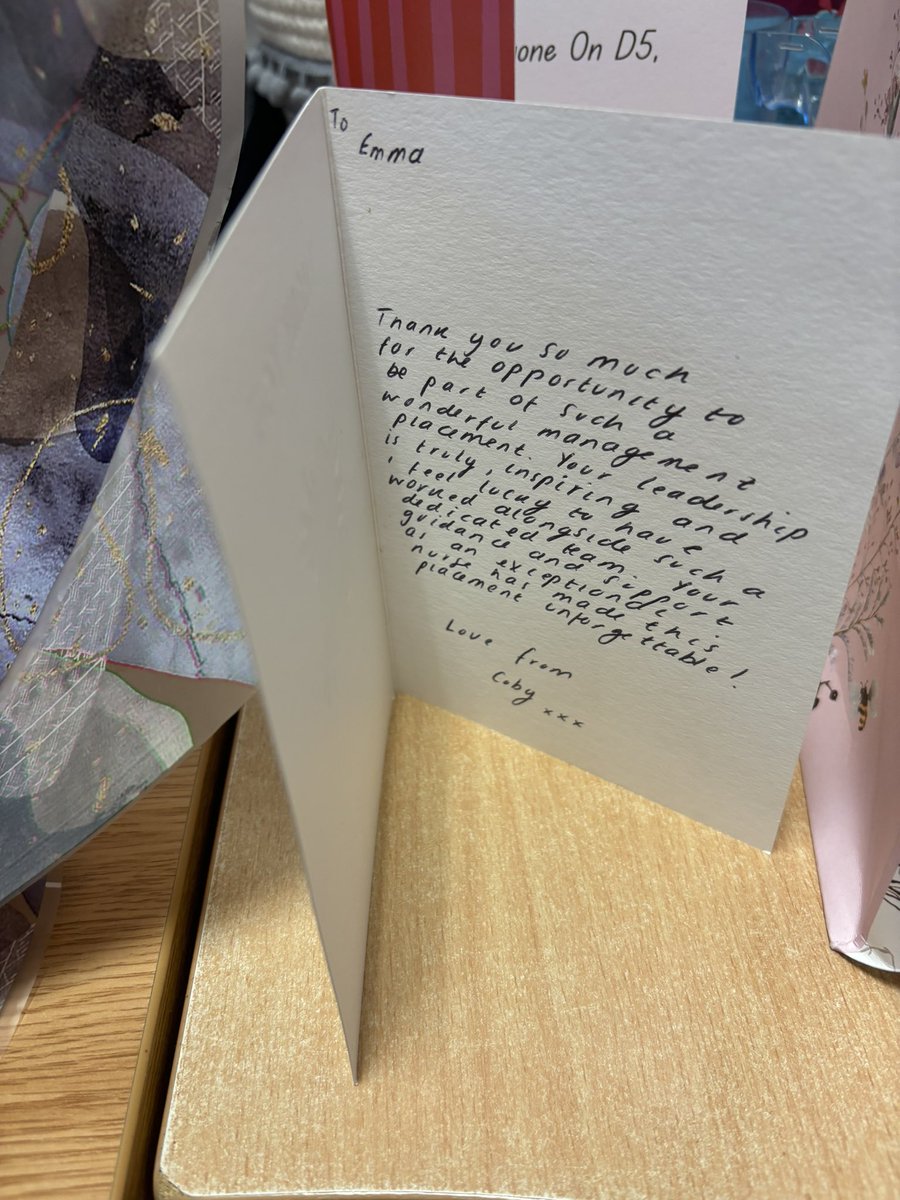 one On D5,
To
Emma
Thank you so much
for the opportunity to
be part of such a
wonderful management
placement. Your leadership
is truly, inspiring and
i feel lucky to have
worked alongside such a
dedicated team. Your
guidance and support
as an exceptional
nurse has made this
placement unforgettable!
Love from
Coby xxx